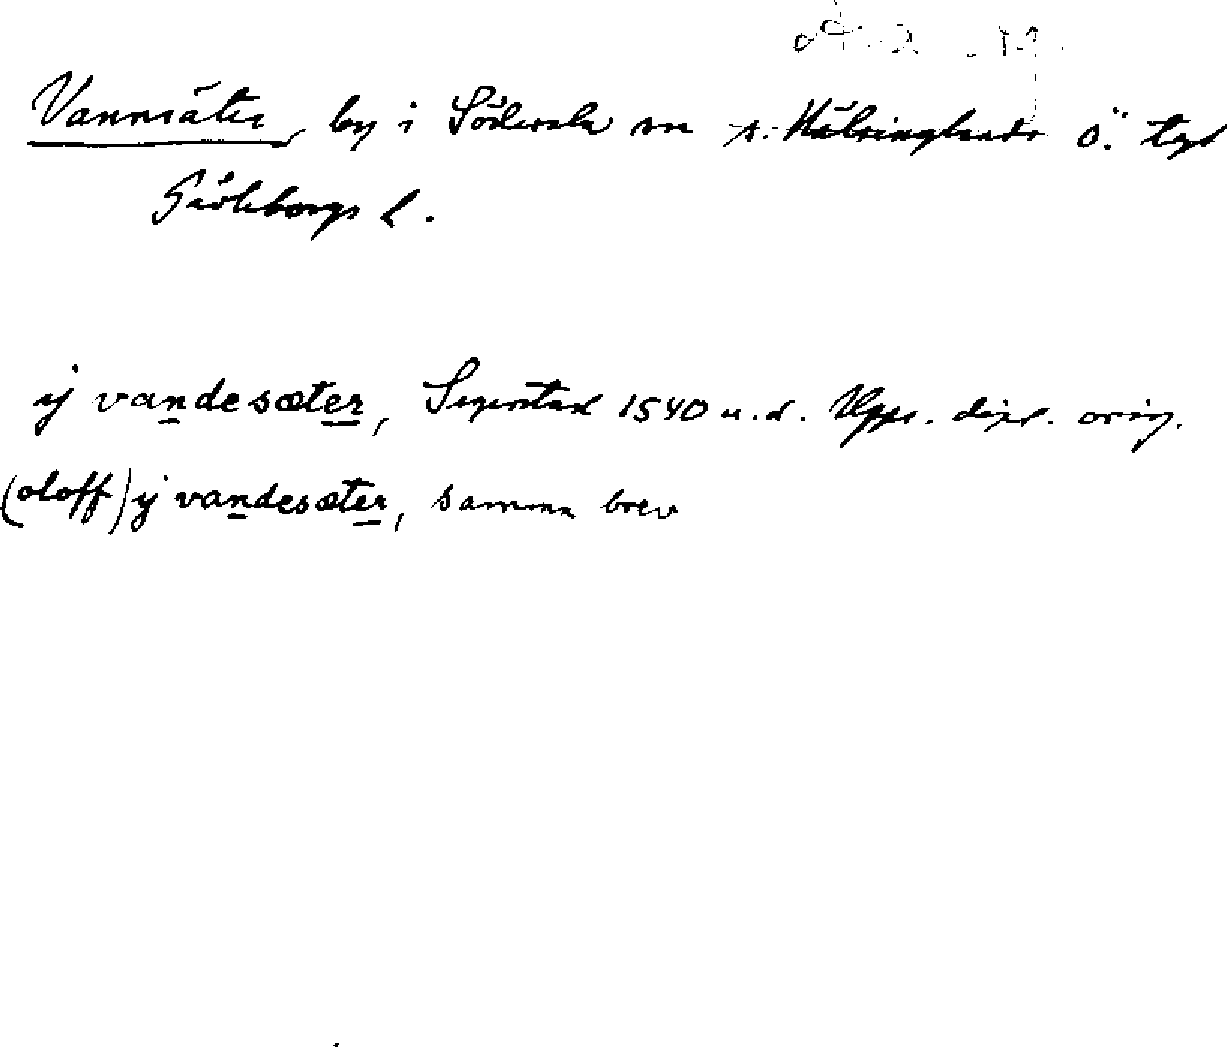 Vannsäter, by i Söderala sn s. Hälsinglands ö. tgs
Gävleborgs l.
ij vandesæter, Segerstad 1540 u.d. Upps. dipl. orig.
(oloff) ij vandesæter, samma brev